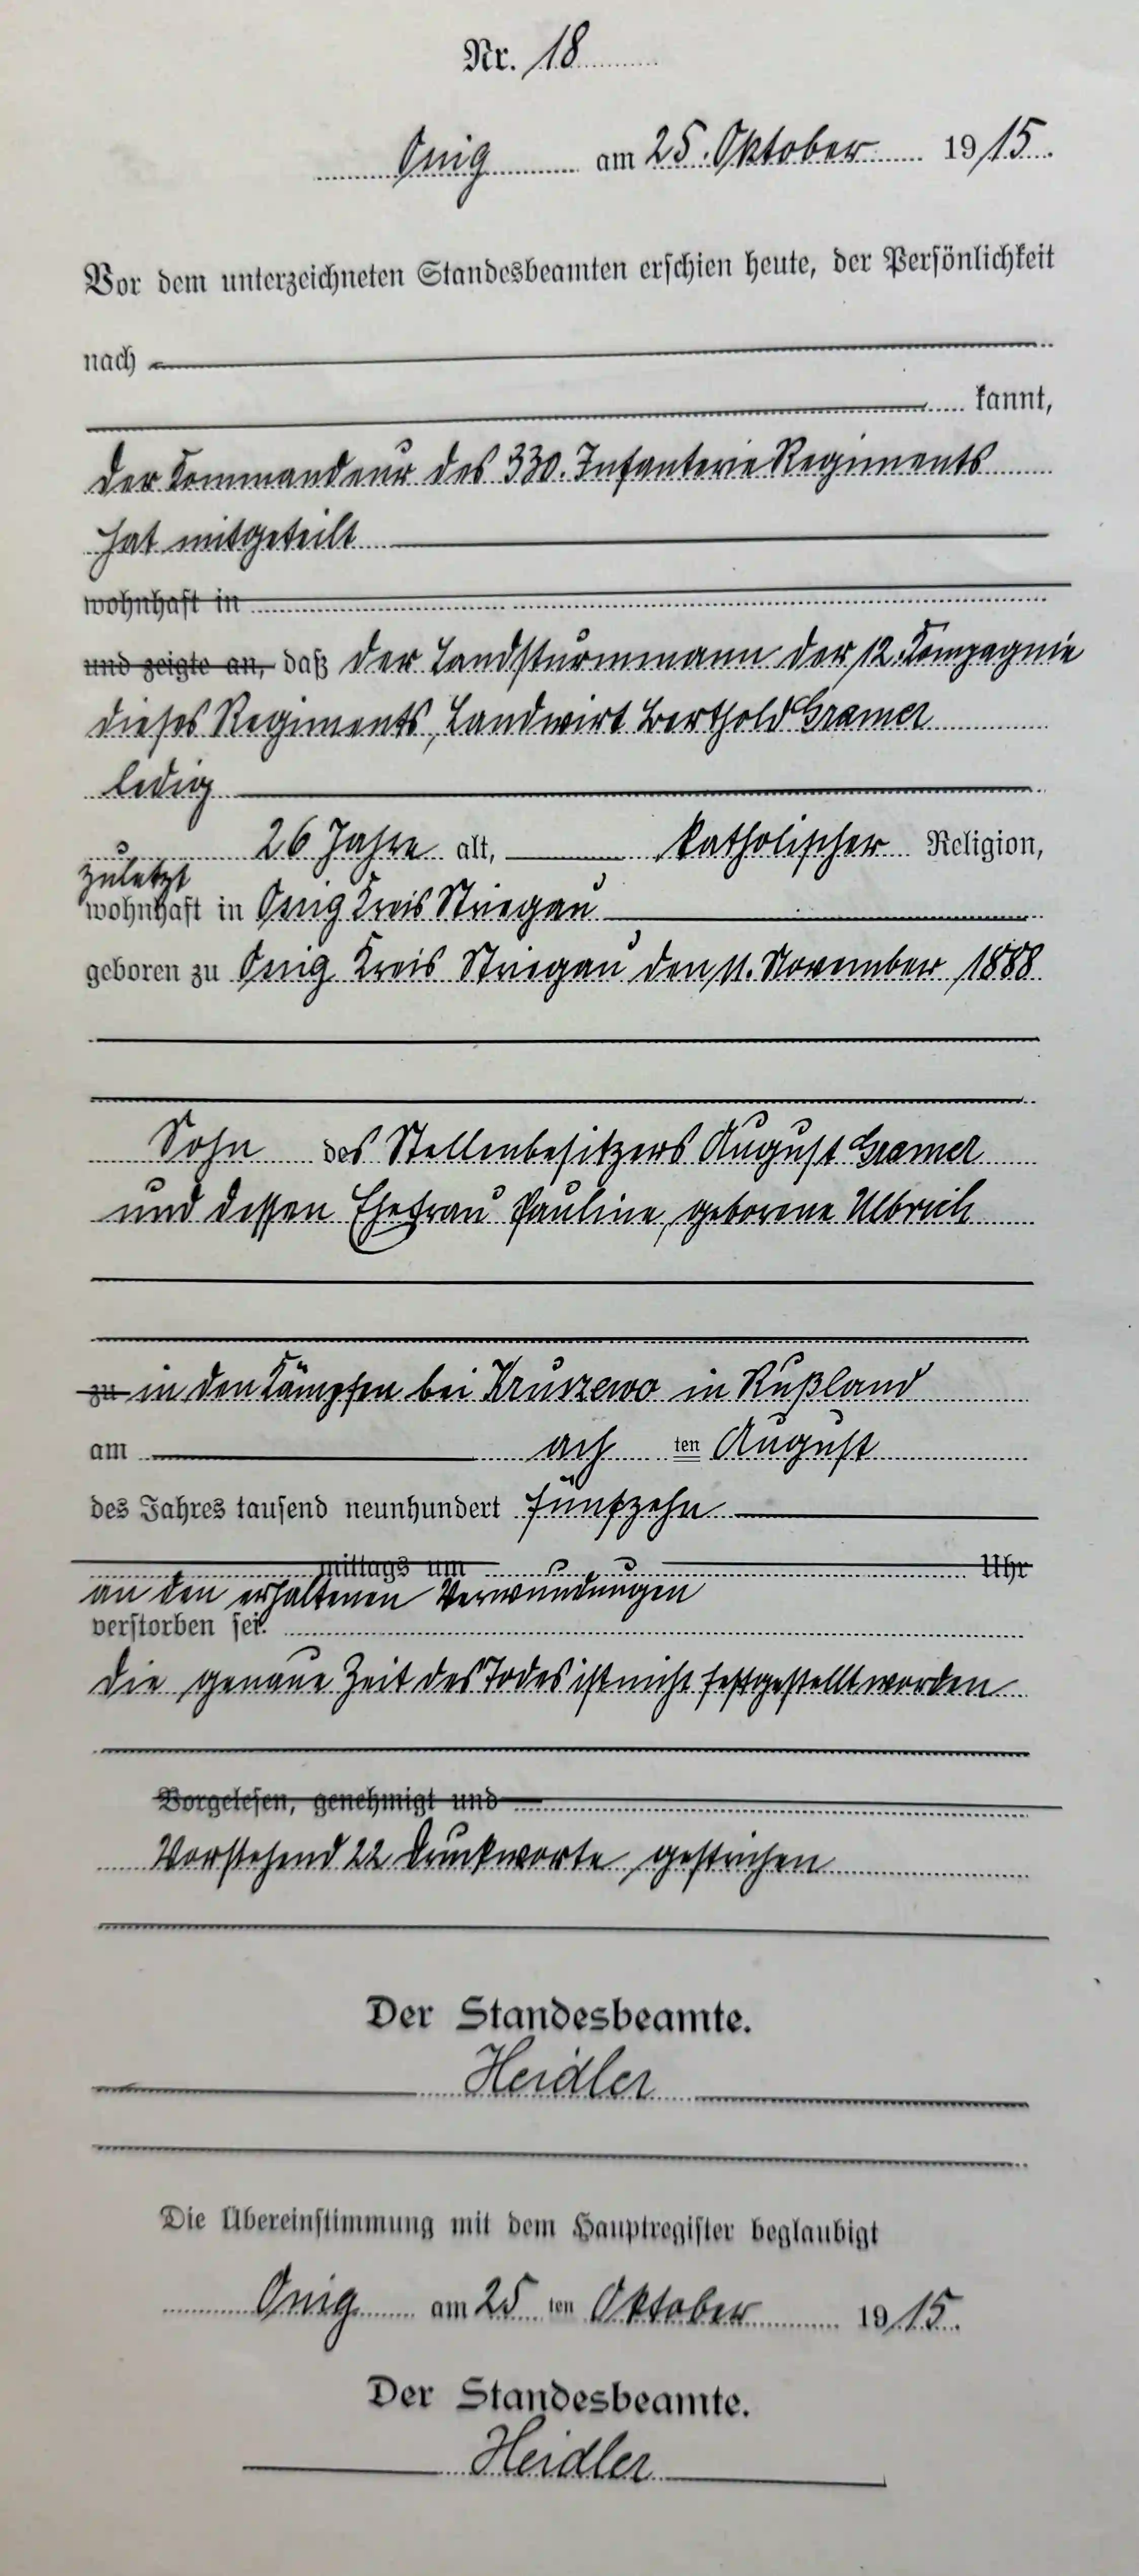 Nr. 18
Ossig am 25. Oktober 1915.
Vor dem unterzeichneten Standesbeamten erschien heute, der Persönlichkeit
nach
kannt,
der Kommandeur des 330. Infanterie Regiments
hat mitgeteilt
wohnhaft in
und zeigte an, daß der Landsturmmann der 12. Kompagnie
dieses Regiments, Landwirt Berthold Gramer
ledig
26 Jahre alt, katholischer Religion,
zuletzt
wohnhaft in Ossig Kreis Striegau
geboren zu Ossig Kreis Striegau den 11. November 1888
Sohn des Stellenbesitzers August Gramer
und dessen Ehefrau Pauline, geborene Ulbrich
zu in den Kämpfen bei Kruszewo in Rußland
am ach ten August
des Jahres tausend neunhundert fünfzehn
mittags um Uhr
an den erhaltenen Verwundungen
verstorben sei.
Die genaue Zeit des Todes ist nicht festgestellt worden
Vorgelesen, genehmigt und
Vorstehend 22 Druckworte gestrichen
Der Standesbeamte.
Heidler
Die Übereinstimmung mit dem Hauptregister beglaubigt
Ossig am 25 ten Oktober 1915.
Der Standesbeamte.
Heidler